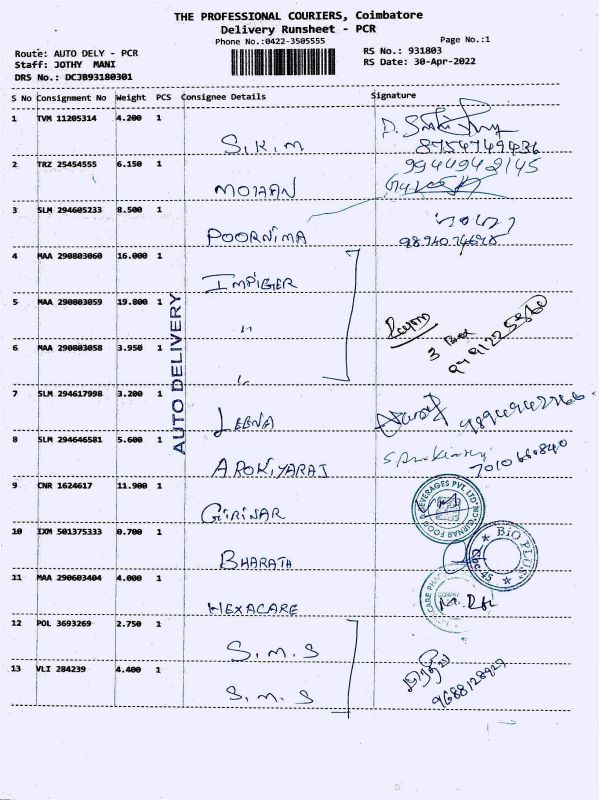 THE PROFESSIONAL COURIERS, Coimbatore
Delivery Runsheet - PCR
Phone No.:0422-3505555
Page No.:1
Route: AUTO DELY - PCR
RS No.: 931803
Staff: JOTHY MANI
RS Date: 30-Apr-2022
DRS No.: DCJB93180301
S No Consignment No Weight PCS Consignee Details Signature
1 TVM 11205314 4.200 1
S.K.M 8754749436
2 TRZ 25454555 6.150 1 9944949145
MOHAN
3 SLM 294605233 8.500 1
POORNIMA
4 MAA 290803060 16.000 1
IMPIGER
5 MAA 290803059 19.800 1
"
3 Box
6 MAA 290803058 3.950 1
"
AUTO DELIVERY
7 SLM 294617998 3.200 1
LEENA
8 SLM 294646581 5.600 1
AROKIYARAJ
9 CNR 1624617 11.900 1
GIRINAR
10 IXM 501375333 0.700 1
BiO PLUS
BHARATH
11 MAA 290603404 4.000 1
HEXACARE
12 POL 3693269 2.750 1
S.M.S
13 VLI 284239 4.400 1
S.M.S 9688128927